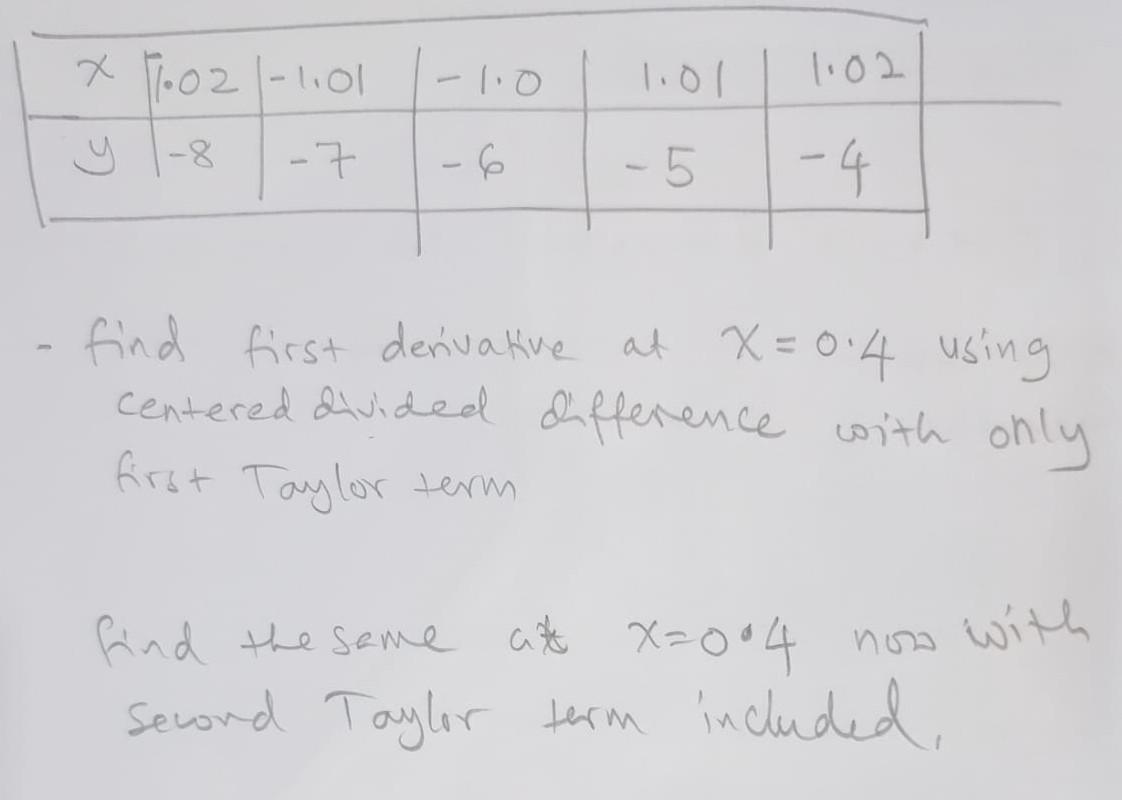 x -1.02 -1.01 -1.0 1.01 1.02
y -8 -7 -6 -5 -4
- find first derivative at x = 0.4 using
centered divided difference with only
first Taylor term
find the same at x=0.4 now with
second Taylor term included.